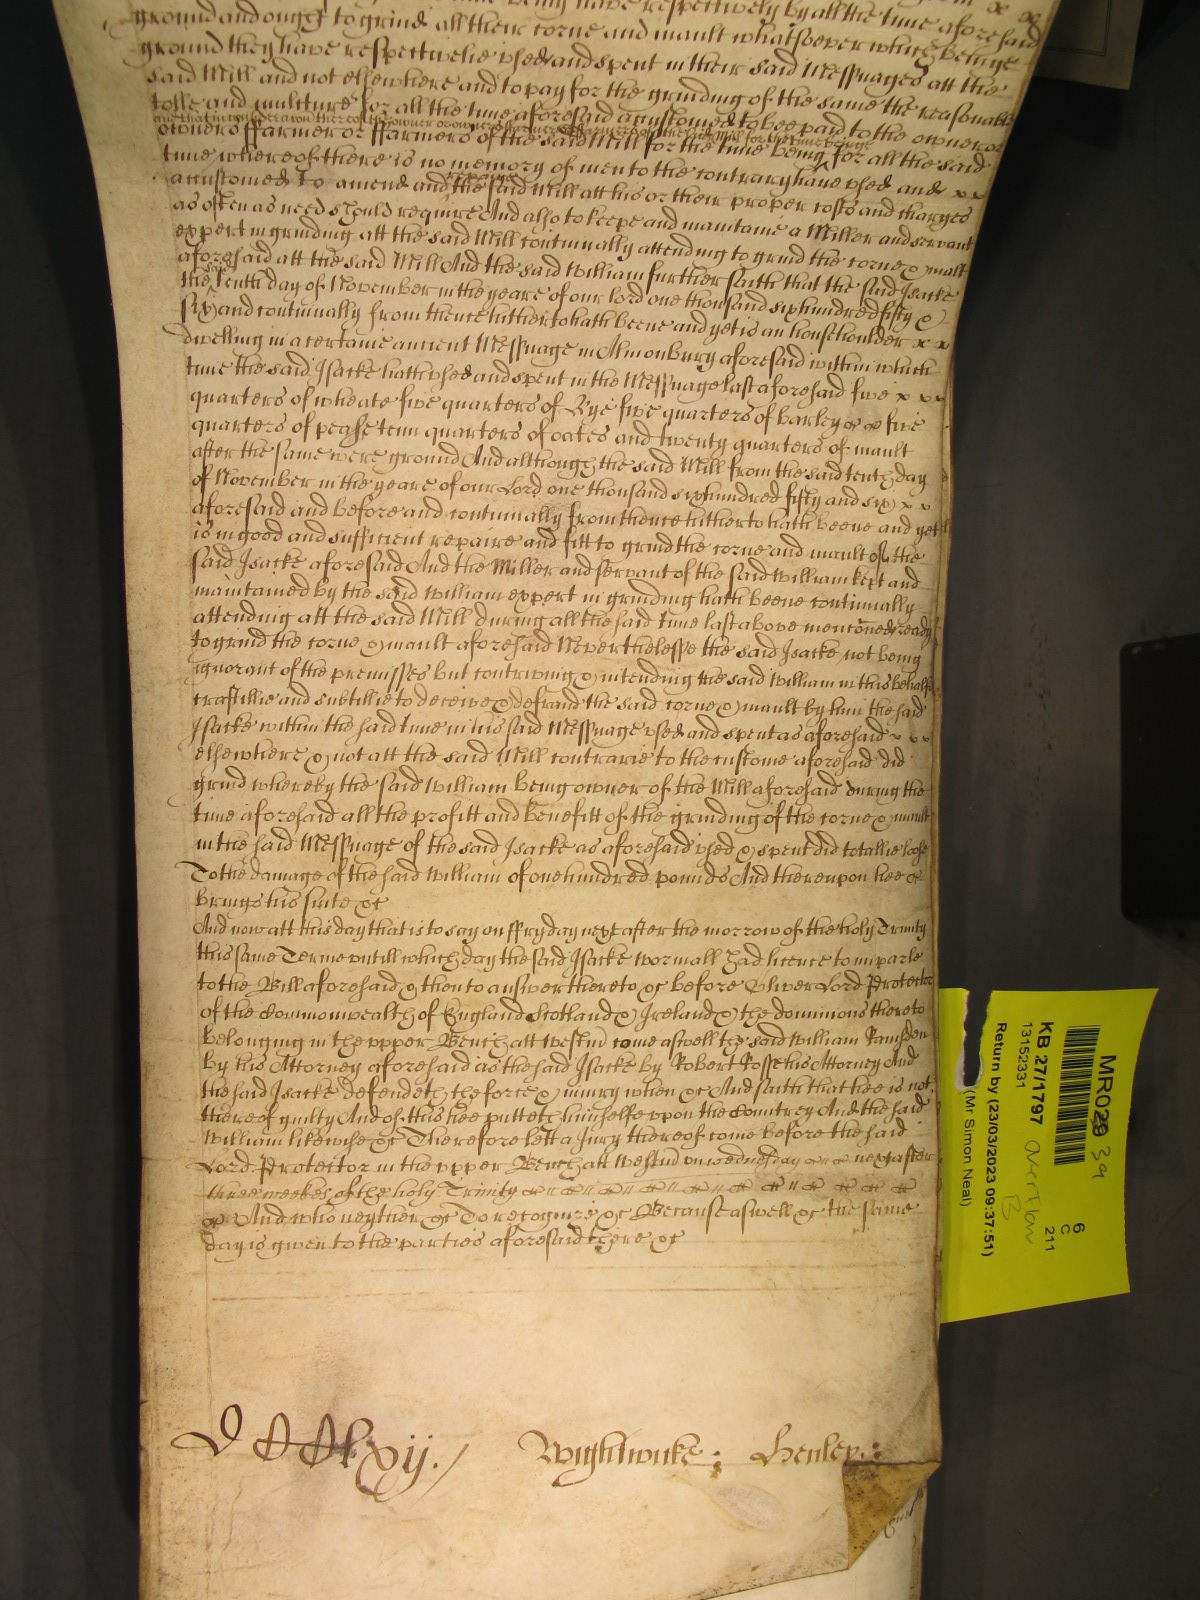 being have respectively by all the time aforesaid
ground and ought to grind all their corne and mault whatsoever which beinge
ground they have respectivelie used and spent in their said Messuages att the
said Mill and not elsewhere and to pay for the grinding of the same the reasonable
tolle and multure for all the time aforesaid accustomed to bee paid to the owner or
and that in consideration thereof the owner or owners farmer or farmers of the said Mill for the time being
owners ffarmer or ffarmers of the said Mill for the time being for all the said
time whereof there is no memory of men to the contrary have used and x x
accustomed to amend and repaire the said Mill att his or their proper costs and charges
as often as need should require And also to keepe and maintaine a Miller and servant
expert in grinding att the said Mill continually attending to grind the corne & mault
aforesaid att the said Mill And the said William further saith that the said Isacke
the said tenth day of November in the yeare of our lord one thousand sixhundred fifty &
six and continually from thence hitherto hath beene and yet is an housholder x x
dwelling in a certaine ancient Messuage in Almonbury aforesaid within which
time the said Isacke hath used and spent in the Messuage last aforesaid five x x x
quarters of wheate five quarters of Rye five quarters of barley & & five
quarters of pease tenn quarters of oates and twenty quarters of mault
after the same were ground And although the said Mill from the said tenth day
of November in the yeare of our Lord one thousand sixhundred fifty and six x x
aforesaid and before and continually from thence hitherto hath beene and yet
is in good and sufficient repaire and fitt to grind the corne and mault of the
said Isacke aforesaid And the Miller and servant of the said William kept and
maintained by the said William expert in grinding hath beene continually
attending att the said Mill during all the said time last above menconed ready
to grind the corne & mault aforesaid Neverthelesse the said Isacke not being
ignorant of the premisses but contriving & intending the said William in this behalfe
craftillie and subtillie to deceive & defraud the said corne & mault by him the said
Isacke within the said time in his said Messuage used and spent as aforesaid x x x
elsewhere & not att the said Mill contrarie to the custome aforesaid did
grind whereby the said William being owner of the Mill aforesaid during the
time aforesaid all the profitt and benefitt of the grinding of the corne & mault
in the said Messuage of the said Isacke as aforesaid used & spent did totallie loose
To the damage of the said William of one hundred pounds And thereupon hee &
brings his suite &c
And now att this day that is to say on ffryday next after the morrow of the holy Trinity
this same Terme untill which day the said Isacke wormall had licence to imparle
to the Bill aforesaid & then to answer thereto &c before Oliver Lord Protector
of the Commonwealth of England Scotland & Ireland & the dominions thereto
belonging in the upper Bench att Westm come aswell the said William Ramsden
by his Attorney aforesaid as the said Isacke by Robert Rosse his Attorney And
the said Isacke defendeth the force & iniury when &c And saith that hee is not
thereof guilty And of this hee putteth himselfe upon the Countrey And the said
William likewise &c Therefore lett a Jury thereof come before the said
Lord Protector in the upper Bench att Westm on wednesday & & next after
three weekes of the holy Trinity
& And who neyther &c To recognize &c Because aswell &c the same
day is given to the parties aforesaid there &c
DCClxij./ Wightwicke: Henley:
MR029 39
KB 27/1797
13152331
Return by (23/03/2023 09:37:51)
(Mr Simon Neal)
6
C
211
Overflow
B